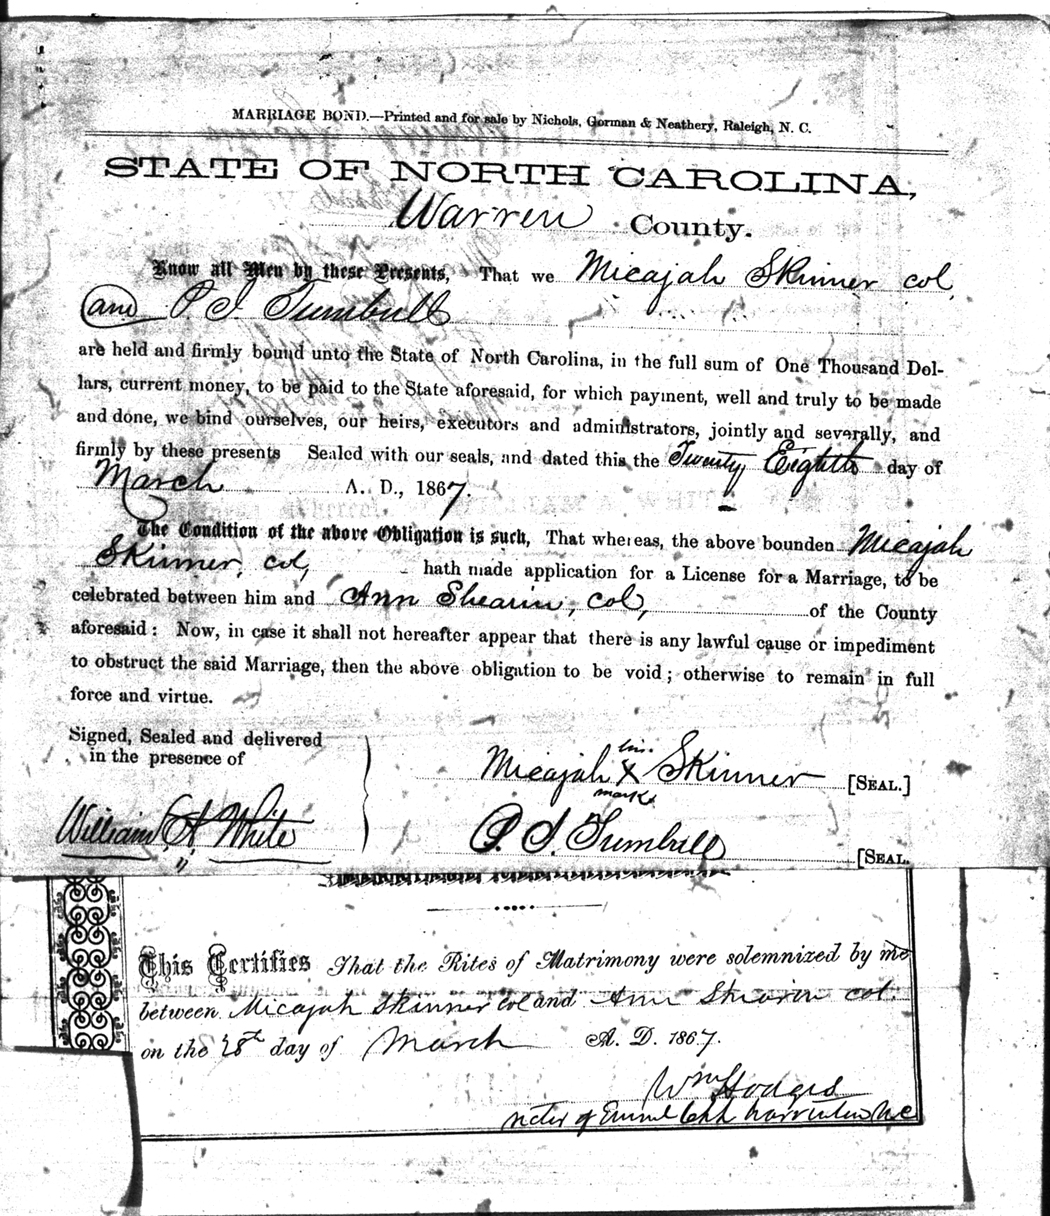 MARRIAGE BOND.—Printed and for sale by Nichols, Gorman & Neathery, Raleigh, N. C.
STATE OF NORTH CAROLINA,
Warren County.
Know all Men by these Presents, That we Micajah Skinner col
and P. J. Turnbull
are held and firmly bound unto the State of North Carolina, in the full sum of One Thousand Dol-
lars, current money, to be paid to the State aforesaid, for which payment, well and truly to be made
and done, we bind ourselves, our heirs, executors and administrators, jointly and severally, and
firmly by these presents Sealed with our seals, and dated this the Twenty Eighth day of
March A. D., 1867.
The Condition of the above Obligation is such, That whereas, the above bounden Micajah
Skinner, col, hath made application for a License for a Marriage, to be
celebrated between him and Ann Shearin, col, of the County
aforesaid: Now, in case it shall not hereafter appear that there is any lawful cause or impediment
to obstruct the said Marriage, then the above obligation to be void; otherwise to remain in full
force and virtue.
Signed, Sealed and delivered
in the presence of
his
Micajah X Skinner [SEAL.]
mark
William A White
P. J. Turnbull [SEAL.
This Certifies That the Rites of Matrimony were solemnized by me
between Micajah Skinner col and Ann Shearin col.
on the 28th day of March A. D. 1867.
Wm Hodges
of Church N C